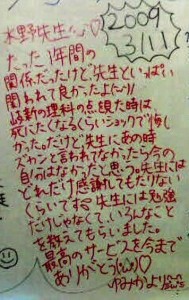 水野先生へ♡
2009
3/11!
たった1年間の
関係だったけど先生といっぱい
関われて良かったよ(^^)/
最新の理科の点数た時は
死にたくなるくらいショックで悔し
かった。だけど先生にあの時
ズカンと言われてなかったら今の
自分はなかったと思う。先生には
どれだけ感謝してもたりない
くらいです。先生には勉強
だけじゃなくて、いろんなこと
を教えてもらいました。
最高のサービスを今まで
ありがとう
ゆみかより